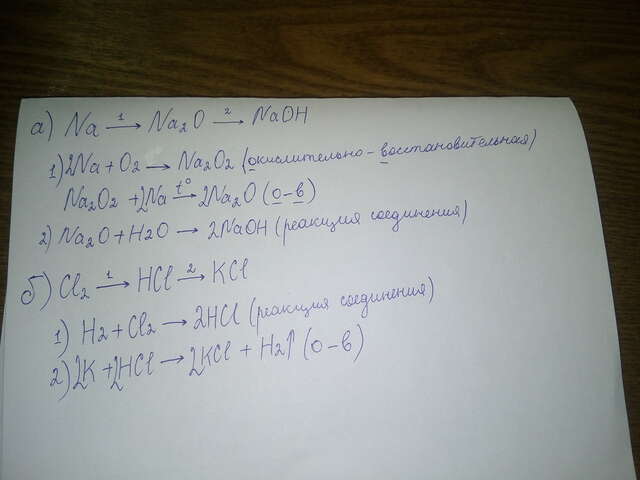 а) Na —1→ Na₂O —2→ NaOH
1) 2Na + O₂ → Na₂O₂ (окислительно-восстановительная)
Na₂O₂ + 2Na —t°→ 2Na₂O (о-в)
2) Na₂O + H₂O → 2NaOH (реакция соединения)
б) Cl₂ —1→ HCl —2→ KCl
1) H₂ + Cl₂ → 2HCl (реакция соединения)
2) 2K + 2HCl → 2KCl + H₂↑ (о-в)